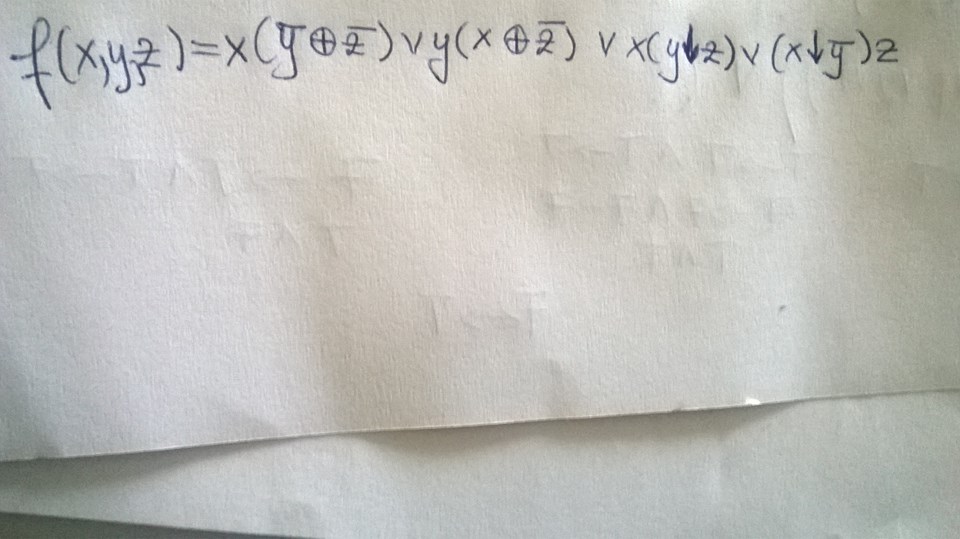 f(x,y,z)=x(y̅⊕z̅)∨y(x⊕z̅)∨x(y↓z)∨(x↓y̅)z